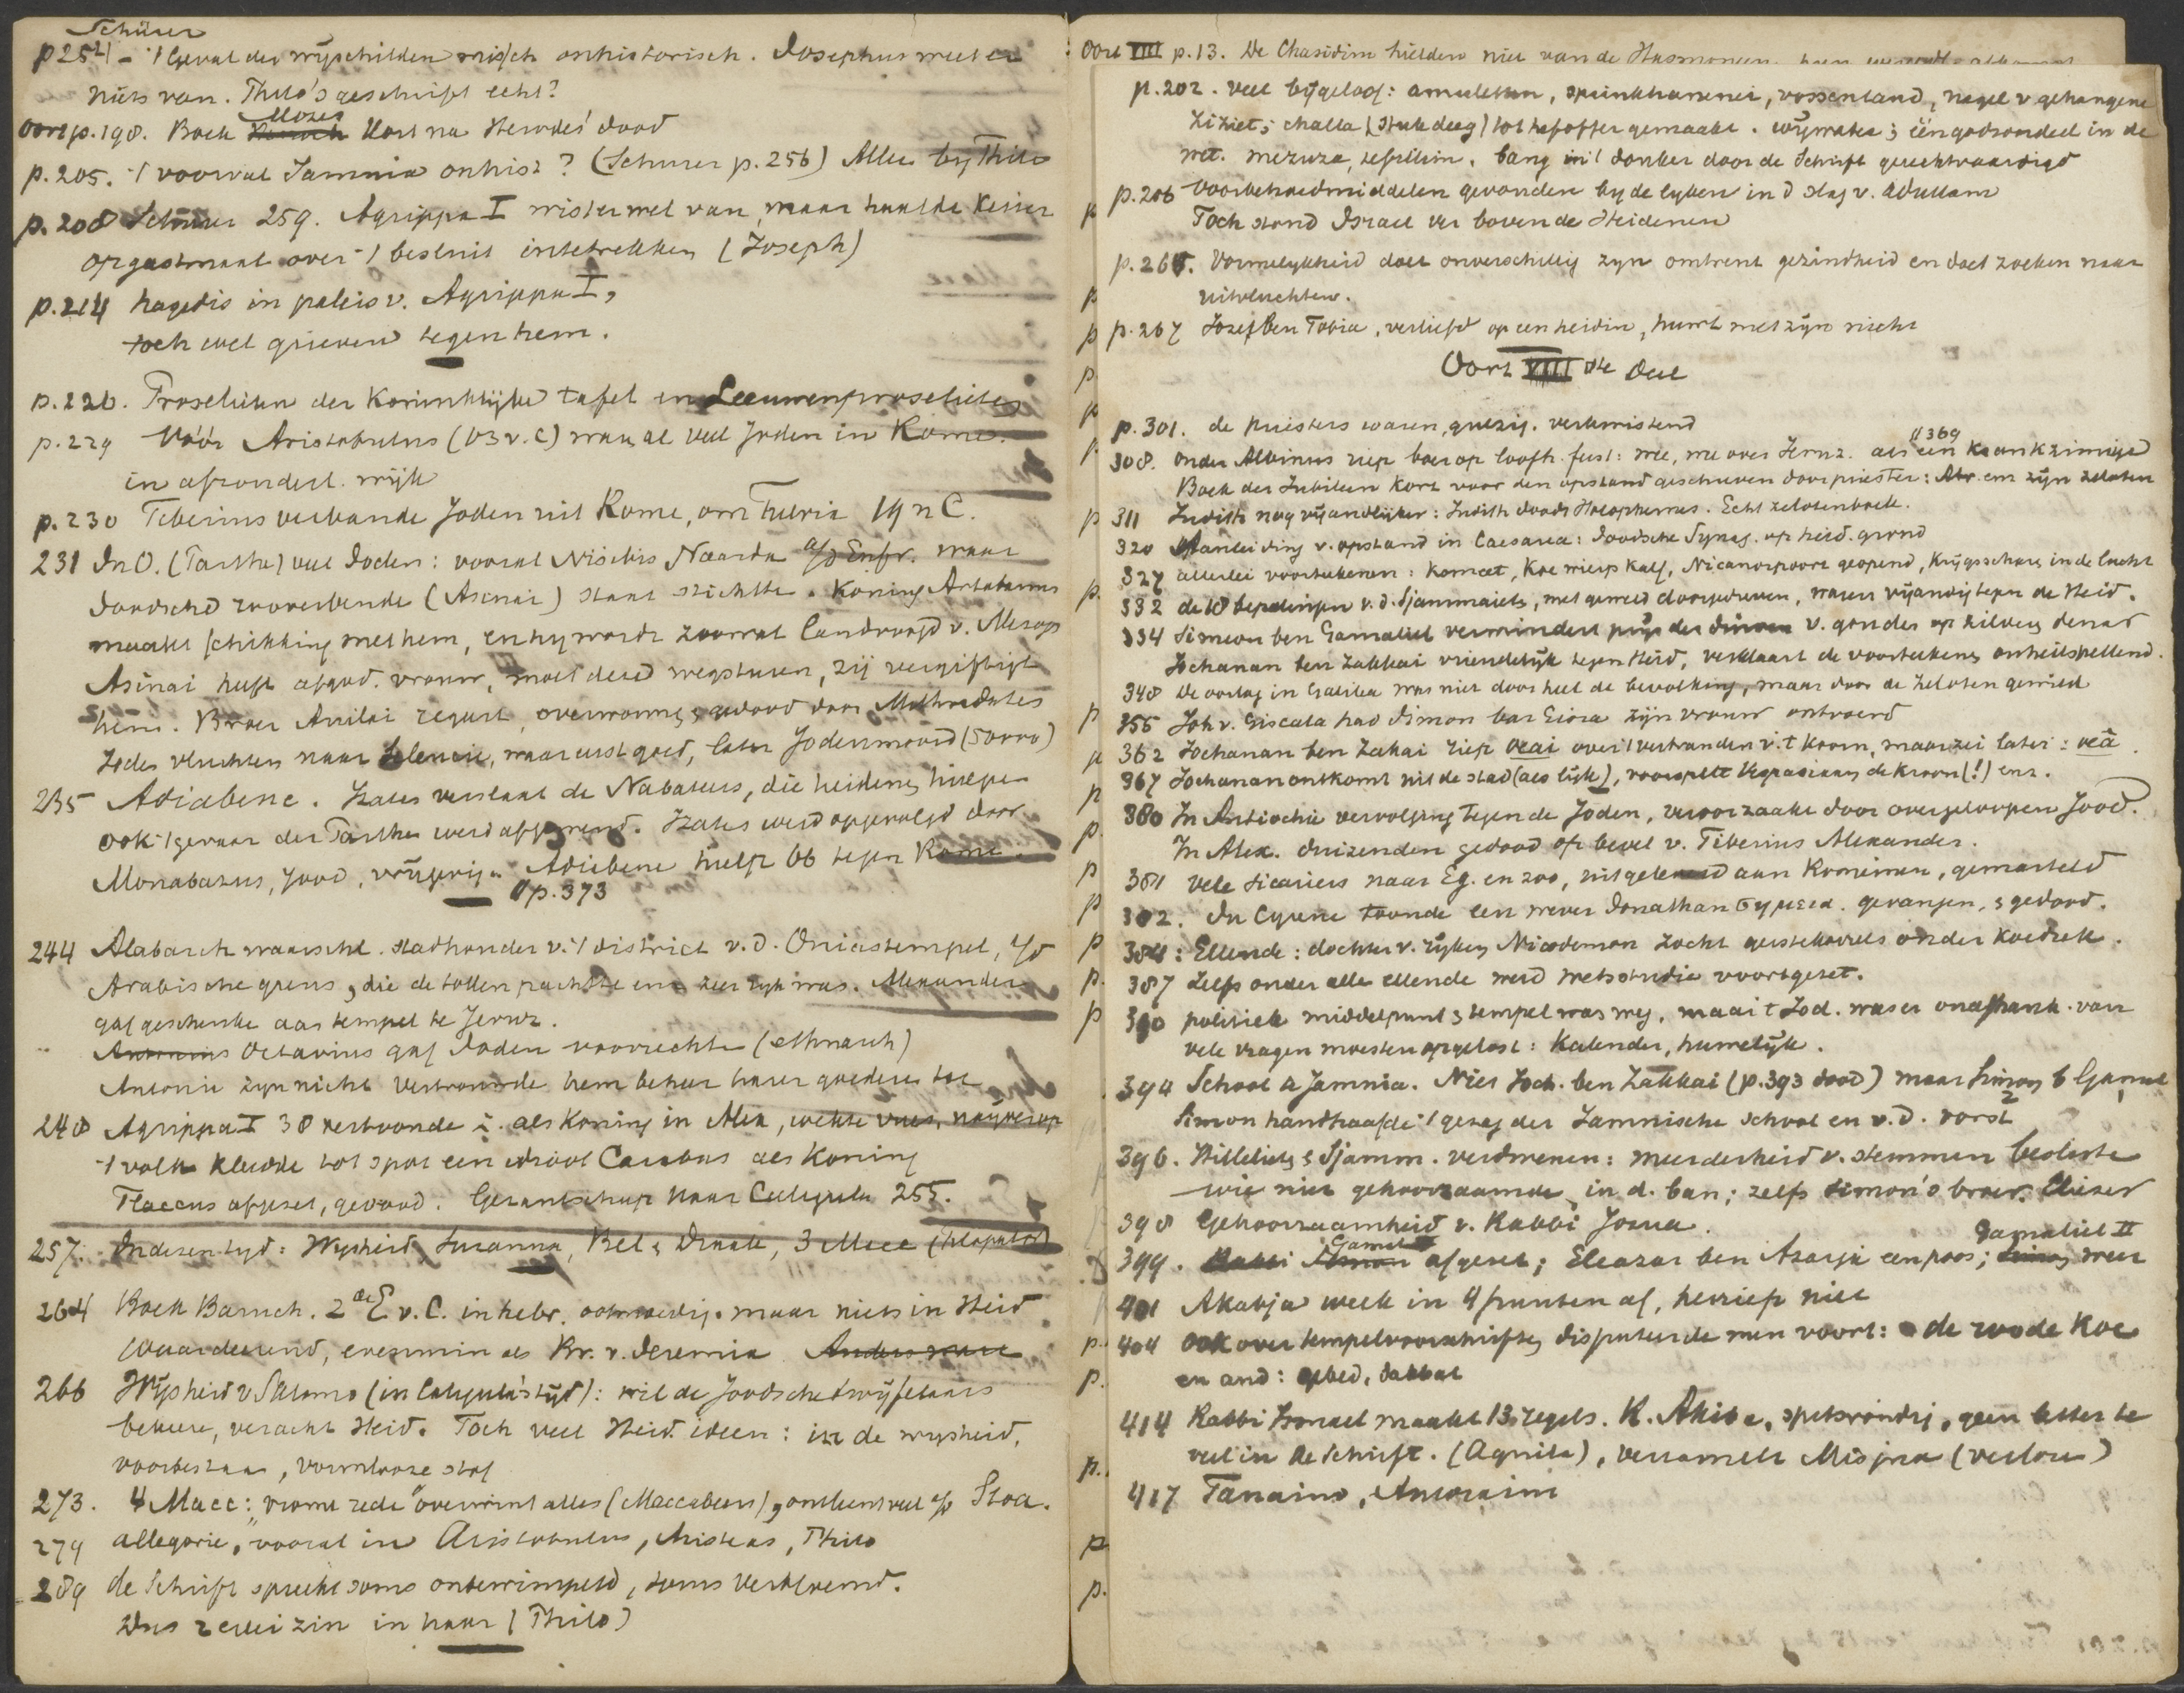 Schürer
p 254 - 't Geval der wijschilden misch onhistorisch. Josephus weet er
niets van. Philo's geschrift echt?
Mozes
Oort p. 198. Boek Henoch kort na Herodes' dood
p. 205. 't voorval Jamnia onhist? (Schurer p. 256) Alles bij Philo
p. 208 Schürer 259. Agrippa I wist er wel van, maar haalde keizer
op gastmaal over 't besluit intetrekken (Joseph)
p. 214 hagedis in paleis v. Agrippa I,
toch wel grieven tegen hem.
p. 226. Proselieten der Koninklijke tafel en Leeuwenproselieten
p. 229 Vóór Aristobulus (63 v. C) waren al veel Joden in Rome.
in afzonderl. wijk
p. 230 Tiberius verbande Joden uit Rome, om Fulvia 19 n C.
231 In O. (Parthe) veel Joden: vooral Nisibis Naarda a/d Eufr. waar
Joodsche rooverbende (Asinai) staat stichtte. Koning Artabanus
maakt schikking met hem, en hij wordt zoowat landvoogd v. Mesop
Asinai huft afgod. vrouw, moet deze wegsturen, zij vergiftigt
hem. Broer Anilai regeert, overwonnen & gedood door Mithradates
Joden vluchten naar Seleucie, waar eerst goed, later Jodenmoord (50000)
235 Adiabene. Izates verslaat de Nabateers, die heidenen hielpen
ook 't gevaar der Parthen werd afgewend. Izates werd opgevolgd door
Monobazus, Jood, vrijgevig. Adiabene hielp 66 tegen Rome.
p. 373
244 Alabarch waarschl. stadhouder v. 't district v. d. Oniastempel, a/d
Arabische grens, die de tollen pachtte en zeer rijk was. Alexander
gaf geschenke aan tempel te Jeruz.
Antonius Octavius gaf Joden voorrechten (ethnarch)
Antonia zijn nicht vertrouwde hem beheer harer goederen toe
248 Agrippa I 38 vertoonde z. als koning in Alex, wekte vrees, naijver op
't volk kleedde tot spot een idioot Carabas als Koning
Flaccus afgezet, gedood. Gezantschap naar Caligula 255.
257. In dezen tijd: Wijsheid, Susanna, Bel & Draak, 3 Macc (Philopator)
264 Boek Baruch. 2de E v. C. in hebr. ootmoedig. maar niets in Heid
waardeerend, evenmin als Br. v. Jeremia Anders ware
266 Wijsheid v Salomo (in Caligula's tijd): wil de Joodsche twijfelaars
bekeere, veracht Heid. Toch veel Heid. ideen: in de wijsheid,
voorbestaan, vormlooze stof
273. 4 Macc: "vrome rede" overwint alles (Maccabeers), ontleent veel a/d Stoa.
279 allegorie, vooral in Aristobulus, Aristeas, Philo
289 de Schrift spreekt soms onberimpeld, soms verbloemd.
Dus 2 erlei zin in haar (Philo)
Oort VIII p. 13. De Chasidim hielden niet van de Hasmoneen.
p. 202. veel bijgeloof: amuletten, sprinkhanenei, vossentand, nagel v gehangene
Ziziet; challa (stuk deeg) tot hefoffer gemaakt. wijwater; één godsoordeel in de
wet. mezuza, tefillin. bang in 't donker door de Schrift gerechtvaardigd
p. 206 Voorbehoedmiddelen gevonden bij de lijken in d slag v. Adullam
Toch stond Israel ver boven de Heidenen
p. 265. Vormelijkheid doet onverschillig zijn omtrent gezindheid en doet zoeken naar
uitvluchten.
p. 267 Jozef ben Tobia, verliefd op een heidin, huwt met zijn nicht
Oort VIII ste deel
p. 301. de priesters waren, gierig. verkwistend
308. onder Albinus riep boer op loofh. feest: wee, wee over Jeruz. als een krankzinnige // 369
Boek der Jubileen kort voor den opstand geschreven door priester: Abr. en zijn zeloten
311 Judith nog vijandiger: Judith doodt Holophernes. Echt zelotenboek.
320 Aanleiding v. opstand in Caesarea: Joodsche Synag. op heid. grond
327 allerlei voorteekenen: komeet, koe wierp kalf, Nicanorpoort geopend, krijgsschare in de lucht
332 de 18 bepalingen v. d. Sjammaieten, met geweld doorgedreven, waren vijandig tegen de Heid.
334 Simeon ben Gamaliel vermindert prijs der duiven v. gouden op zilveren denar
Jochanan ben Zakkai vriendelijk tegen Heid, verklaart de voorteekenen onheilspellend.
348 De oorlog in Galilea was niet door heel de bevolking, maar door de Zeloten gewild
355 Joh v. Giscala had Simon bar Giora zijn vrouw ontvoerd
362 Jochanan ben Zakai riep veai over 't verbranden v. 't koorn, maar zei later: veä.
367 Jochanan ontkomt uit de stad (als lijk), voorspelt Vespasianus de kroon (!) enz.
380 In Antiochie vervolging tegen de Joden, veroorzaakt door overgeloopen Jood.
In Alex. duizenden gedood op bevel v. Tiberius Alexander.
381 vele sicariers naar Eg. en zoo, uitgeleverd aan Romeinen, gemarteld
382. In Cyrene toonde een wever Jonathan σημεια. gevangen, & gedood.
384: Ellende: dochter v. rijken Nicodemon zocht gerstekorrels onder koedrek.
387 Zelfs onder alle ellende werd wetsstudie voortgezet.
390 politiek middelpunt & tempel was weg, maar 't Jod. was er onafhank. van
vele vragen moesten opgelost: kalender, huwelijk.
394 School te Jamnia. Niet Joch. ben Zakkai (p. 393 dood) maar Simon b Gamal
Simon handhaafde 't gezag der Jamnische school en v. d. vorst
396. Hillelieten & Sjamm. verdwenen: meerderheid v. stemmen besliste
wie niet gehoorzaamde in d. ban; zelfs Simon's broer. Eliezer
398 Gehoorzaamheid v. Rabbi Josua.
399. Rabbi Simon Gamal afgezet; Eleazar ben Azarja een poos; Simon Gamaliel II weer
401 Akabja week in 4 punten af, herriep niet
404 ook over tempelvoorschriften disputeerde men voort: de roode Koe
en and: gebed, sabbat
414 Rabbi Ismael maakt 13 regels. R. Akiba, spitsvondig, geen letter te
veel in de Schrift. (Aquila), verzamelt Misjna (verloren)
417 Tanaim, Amoraim